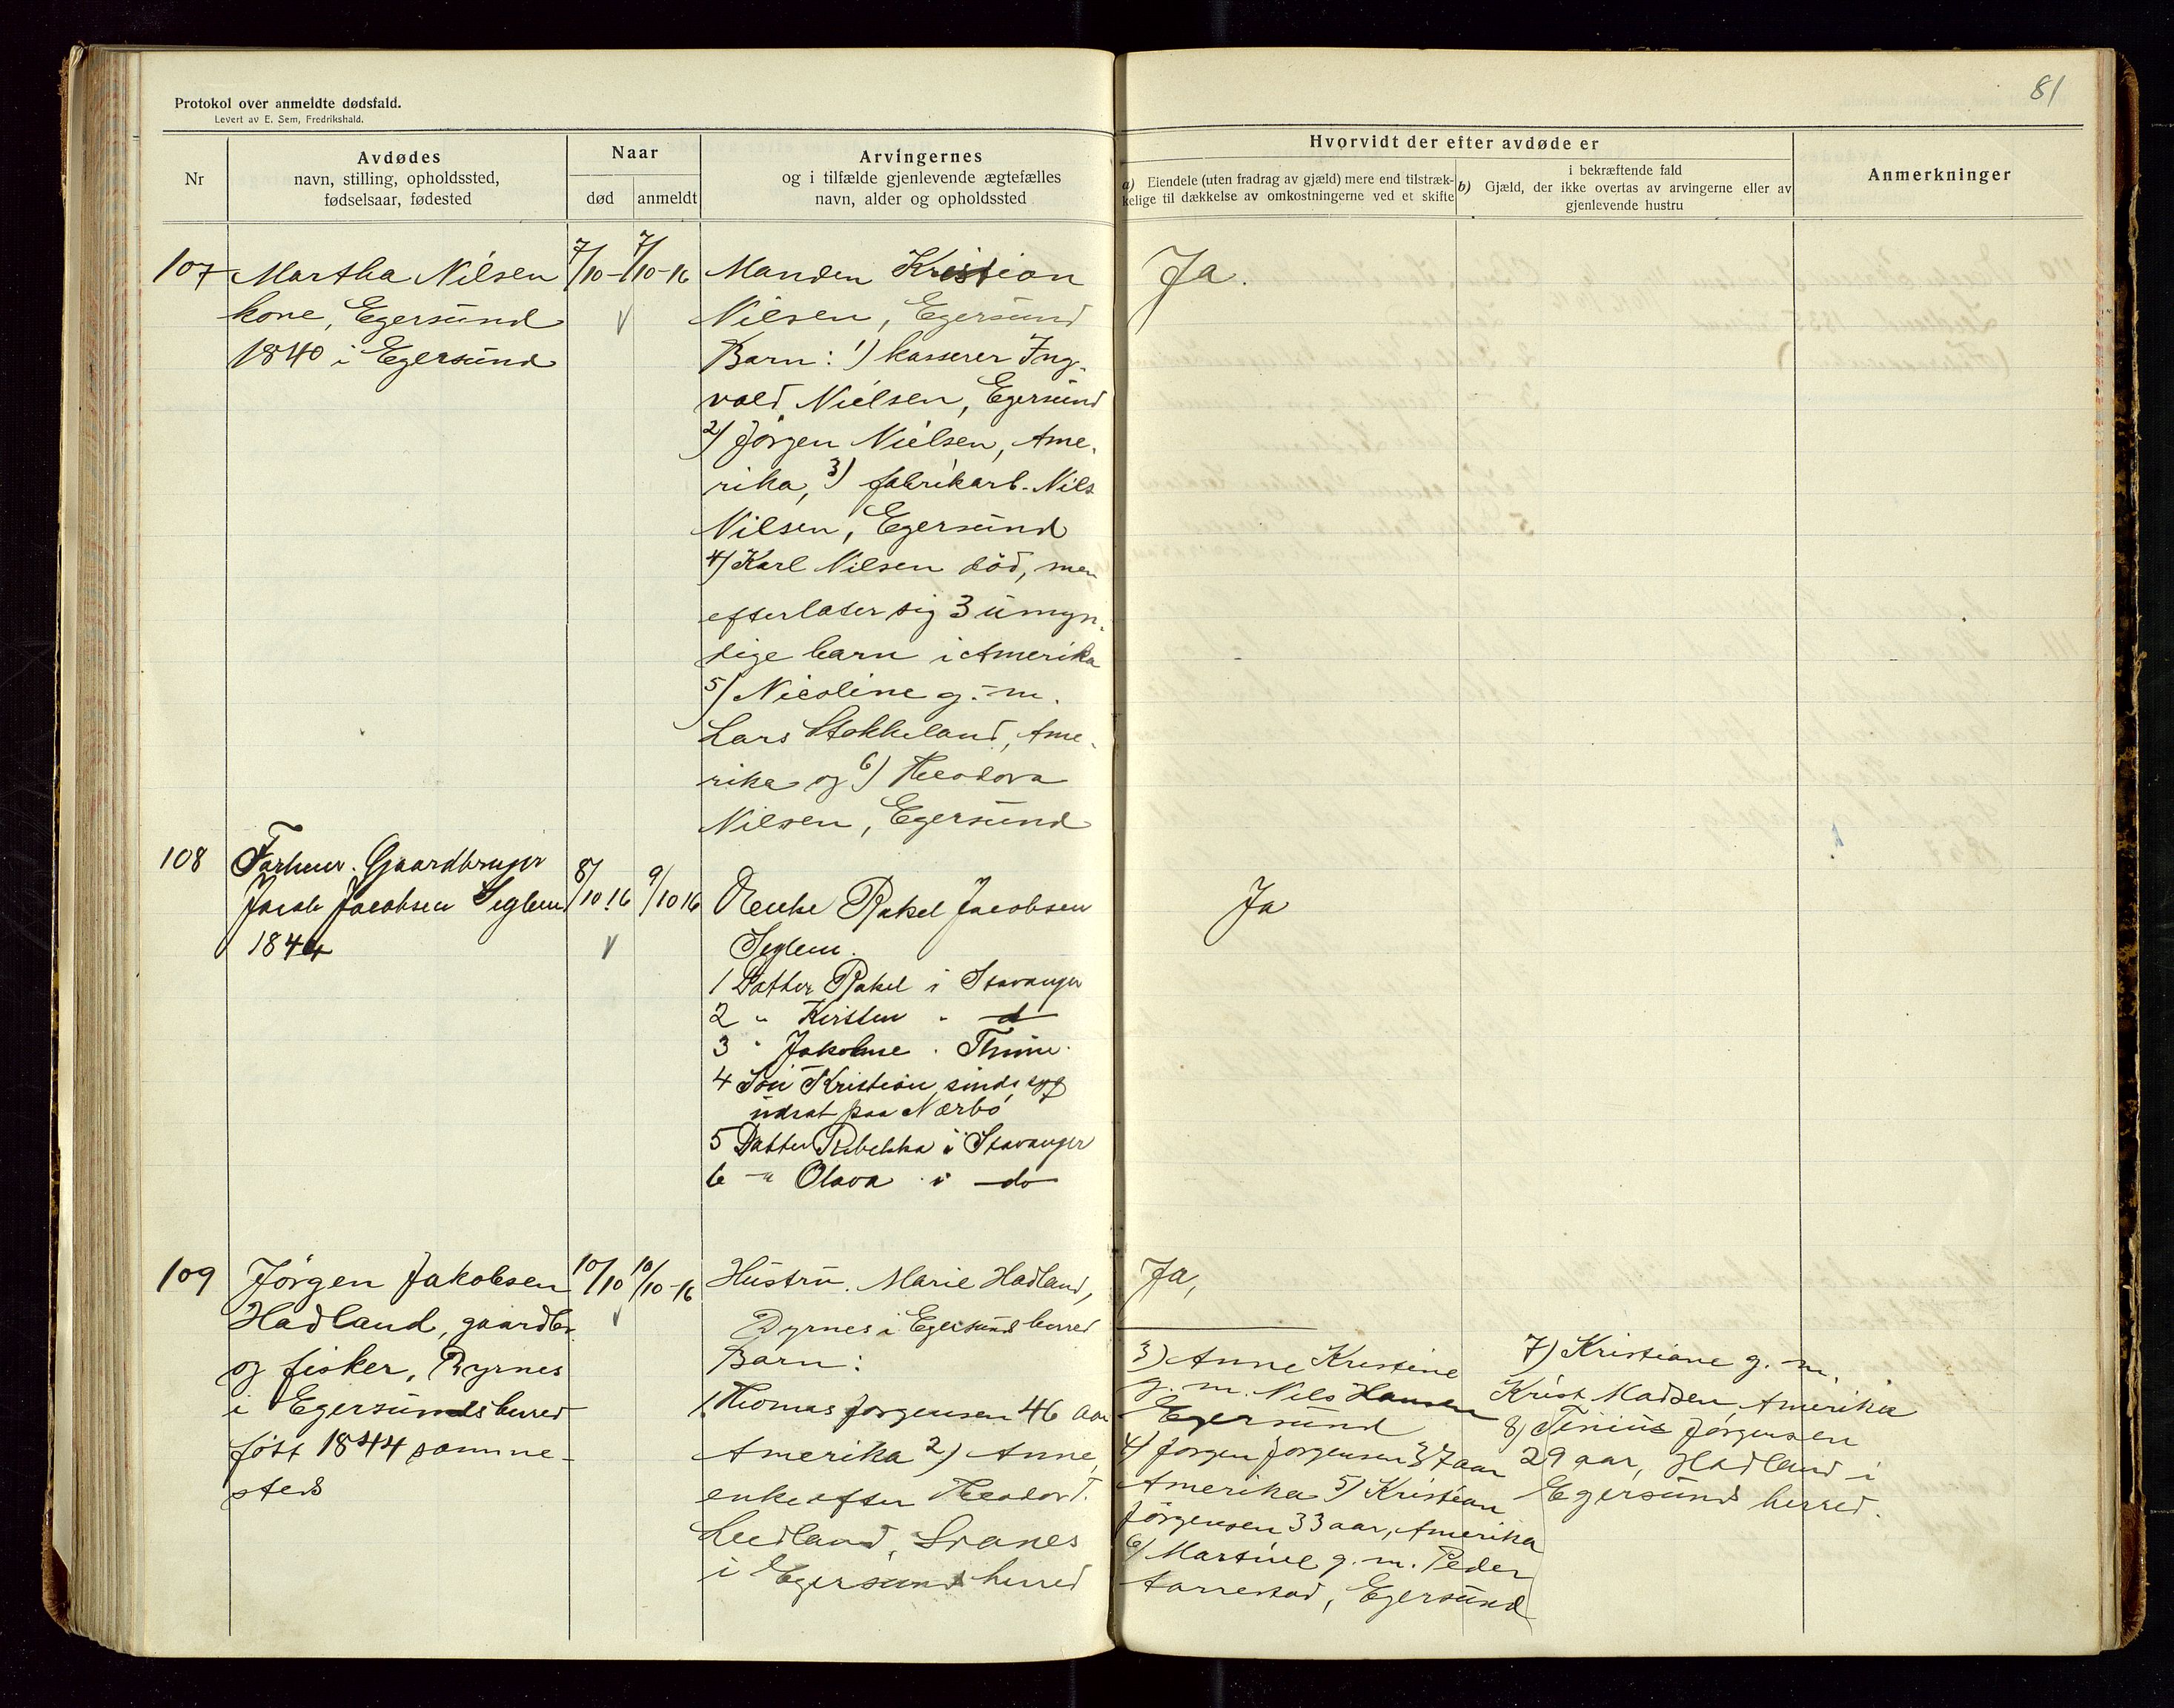 81
Protokol over anmeldte dødsfald.
Levert av E. Sem, Fredrikshald.
Nr
Avdødes
navn, stilling, opholdssted,
fødselsaar, fødested
Naar
død
anmeldt
Arvingernes
og i tilfælde gjenlevende ægtefælles
navn, alder og opholdssted
Hvorvidt der efter avdøde er
a) Eiendele (uten fradrag av gjæld) mere end tilstræk-
kelige til dækkelse av omkostningerne ved et skifte
i bekræftende fald
b) Gjæld, der ikke overtas av arvingerne eller av
gjenlevende hustru
Anmerkninger
107
Martha Nilsen
kone, Egersund
1840 i Egersund
7/10 - 7/10-16
Manden Kristian
Nilsen, Egersund
Barn: 1) kasserer Ing-
vald Nielsen, Egersund
2) Jörgen Nielsen, Ame-
rika, 3) fabrikarb. Nils
Nilsen, Egersund
4) Karl Nilsen död, men
efterlater sig 3 umyn-
dige barn i Amerika
5) Nicoline g. m.
Lars Stokkeland, Ame-
rika og 6) Theodora
Nilsen, Egersund
Ja.
108
Forhenv. Gaardbruger
Jacob Jacobsen Seglem
1844
8/10 16
9/10 16
Enke Rakel Jacobsen
Seglem.
1 Datter Rakel i Stavanger
2 " Kirsten " d
3 " Jakobine " Thime
4 Sön Kristian sindssyg
udsat paa Nærbö
5 Datter Rebekka i Stavanger
6 " Olava i do
Ja
109
Jörgen Jakobsen
Hadland, gaardbr.
og fisker, Dyrnes
i Egersunds herred
född 1844 samme-
steds
10/10 10/10-16
Hustru Marie Hadland,
Dyrnes i Egersunds herred
Barn:
1. Thomas Jørgensen 46 aar
Amerika 2) Anne,
enke efter Theodor T.
Ledland, Svanes
i Egersunds herred
Ja,
3) Anne Kristine
g. m. Nils Hansen
Egersund
4) Jørgen Jørgensen 37 aar
Amerika 5) Kristian
Jörgensen 33 aar, Amerika
6) Martine g. m. Peder
Aarrestad, Egersund
7) Kristiane g. m.
Krist. Madsen Amerika
8) Tinius Jørgensen
29 aar, Hadland i
Egersunds herred.